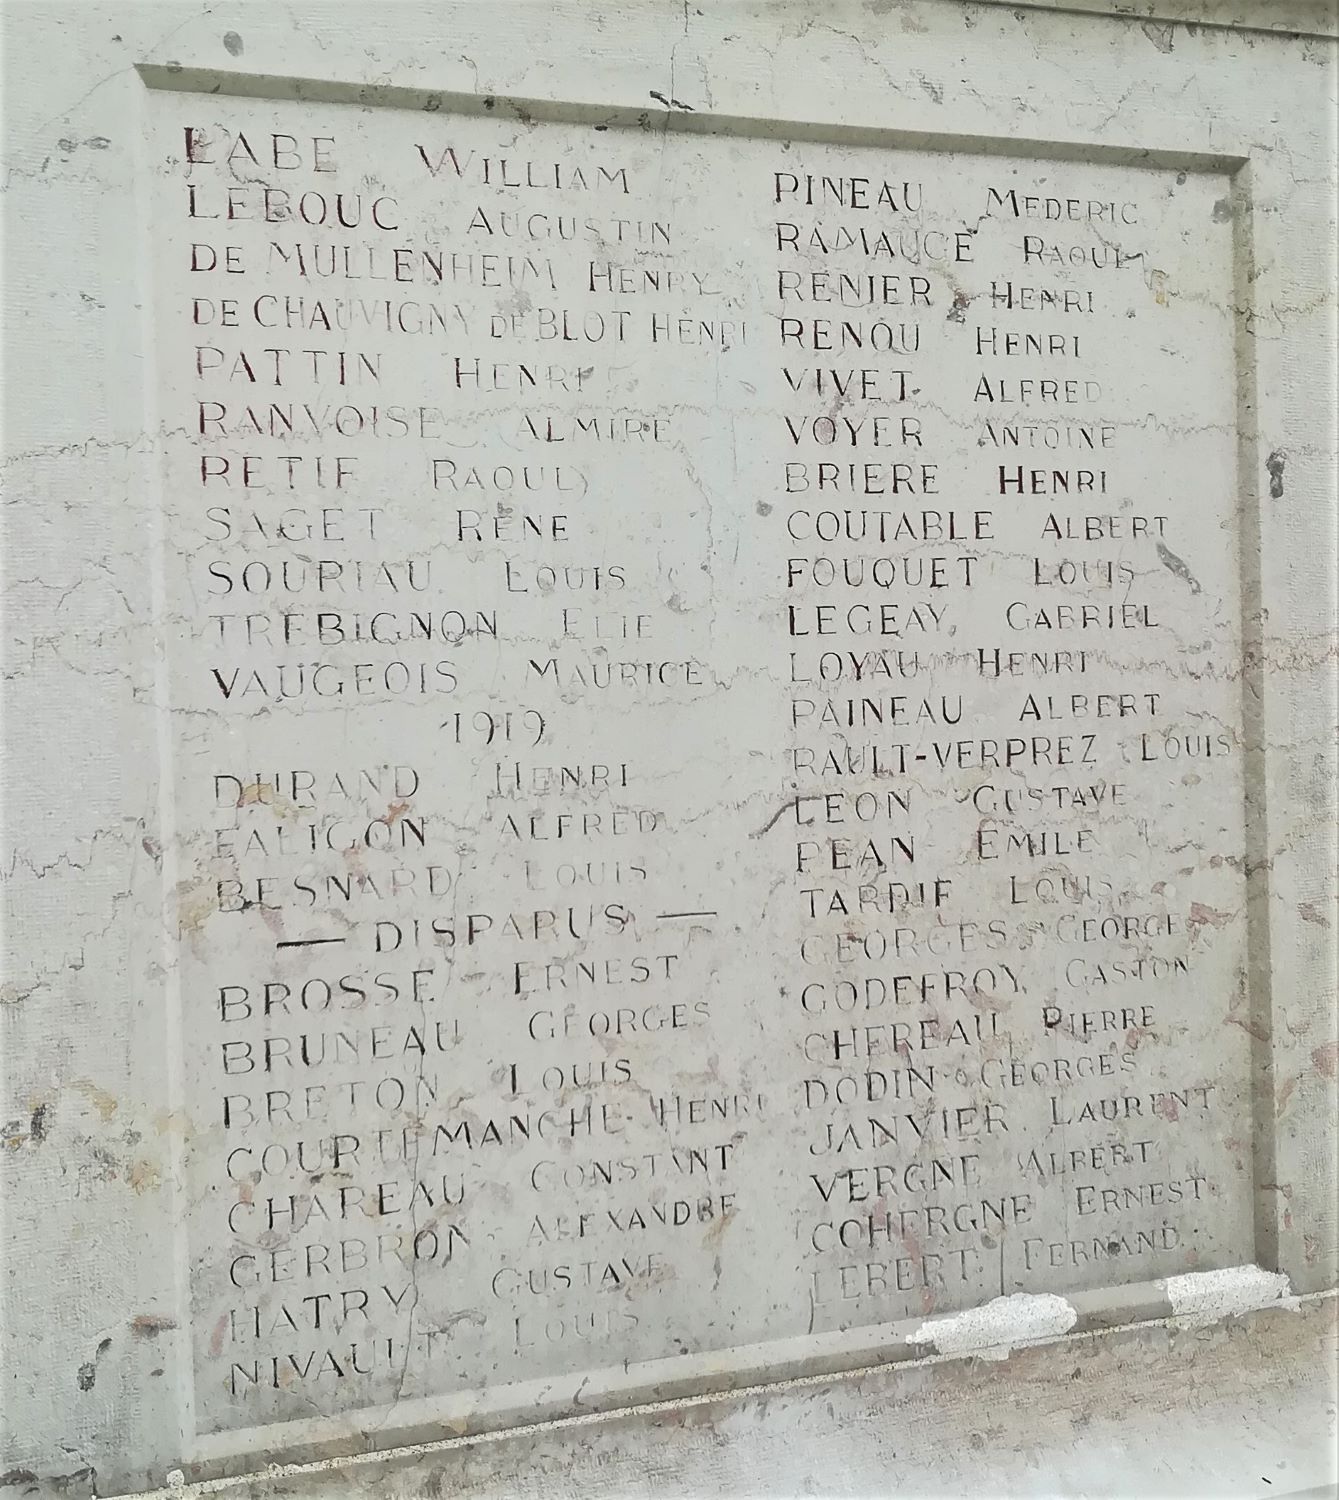 LABE WILLIAM
LEBOUC AUGUSTIN
DE MULLENHEIM HENRY
DE CHAUVIGNY DE BLOT HENRI
PATTIN HENRI
RANVOISE ALMIRE
RETIF RAOUL
SAGET RENE
SOURIAU LOUIS
TREBIGNON ELIE
VAUGEOIS MAURICE
1919
DURAND HENRI
FALIGON ALFRED
BESNARD LOUIS
— DISPARUS —
BROSSE ERNEST
BRUNEAU GEORGES
BRETON LOUIS
COURTEMANCHE HENRI
CHAREAU CONSTANT
GERBRON ALEXANDRE
HATRY GUSTAVE
NIVAULT LOUIS
PINEAU MEDERIC
RAMAUGE RAOUL
RENIER HENRI
RENOU HENRI
VIVET ALFRED
VOYER ANTOINE
BRIERE HENRI
COUTABLE ALBERT
FOUQUET LOUIS
LEGEAY GABRIEL
LOYAU HENRI
PAINEAU ALBERT
RAULT-VERPREZ LOUIS
LEON GUSTAVE
PEAN EMILE
TARDIF LOUIS
GEORGES GEORGES
GODEFROY GASTON
CHEREAU PIERRE
DODIN GEORGES
JANVIER LAURENT
VERGNE ALBERT
COHERGNE ERNEST
LEBERT FERNAND